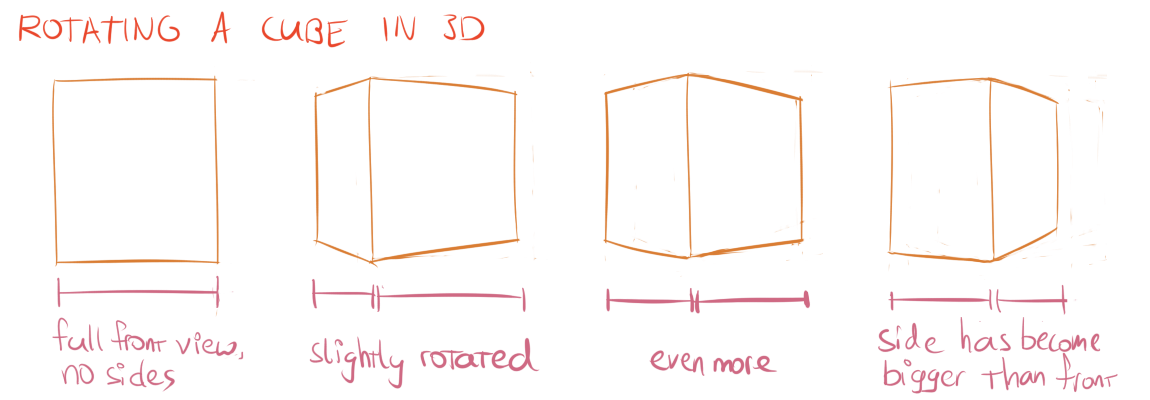 ROTATING A CUBE IN 3D
full front view,
no sides
slightly rotated
even more
side has become
bigger than front